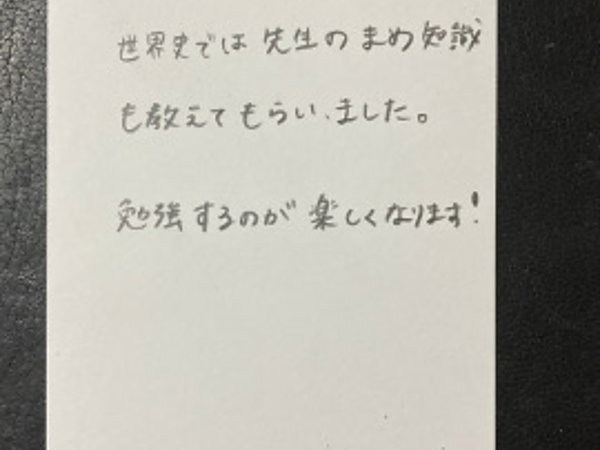 世界史では先生のまめ知識
も教えてもらい、ました。
勉強するのが楽しくなります!